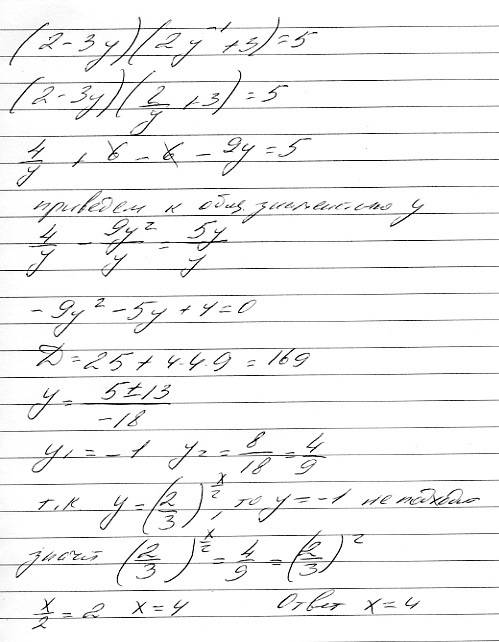 (2-3y)(2y⁻¹+3)=5
(2-3y)(2/y +3)=5
4/y + 6 - 6 - 9y=5
приведем к общ. знаменателю y
4/y - 9y²/y = 5y/y
-9y²-5y+4=0
D=25+4·4·9=169
y= (5±13)/-18
y₁=-1 y₂= 8/18 = 4/9
т.к y=(2/3)^(x/2), то y=-1 не подходит
значит (2/3)^(x/2) = 4/9 = (2/3)²
x/2=2 x=4 Ответ x=4